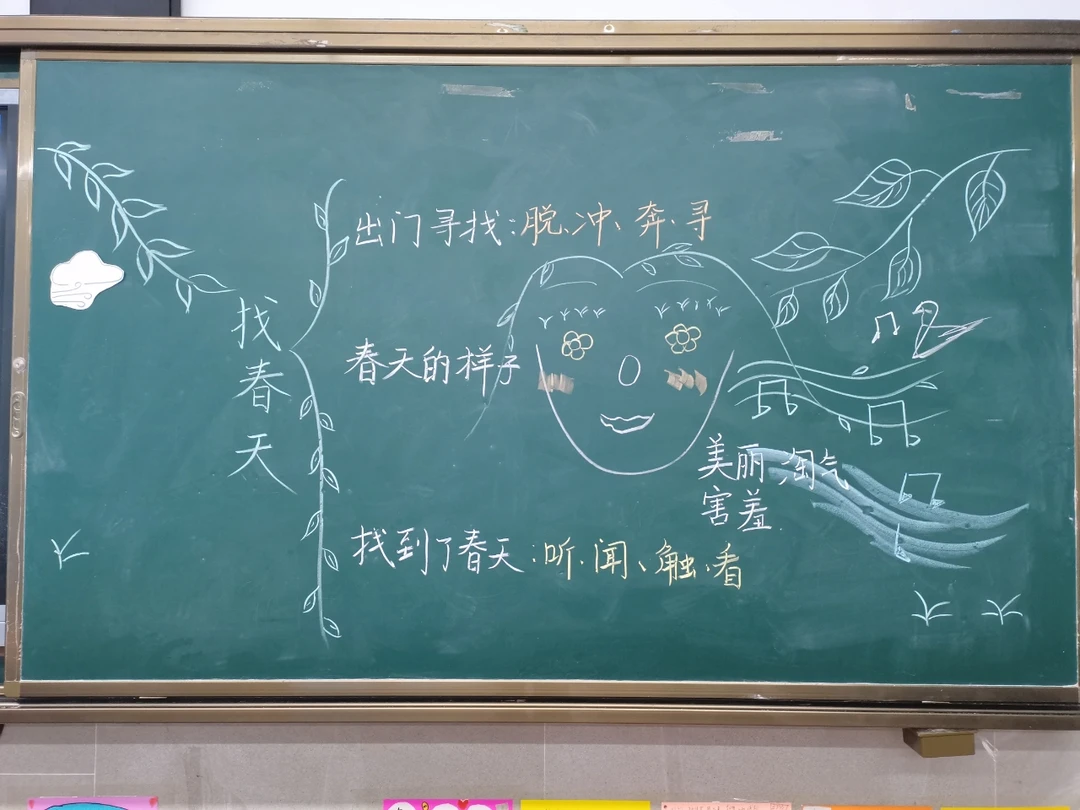 找春天
出门寻找：脱、冲、奔、寻
春天的样子
美丽、淘气
害羞
找到了春天：听、闻、触、看